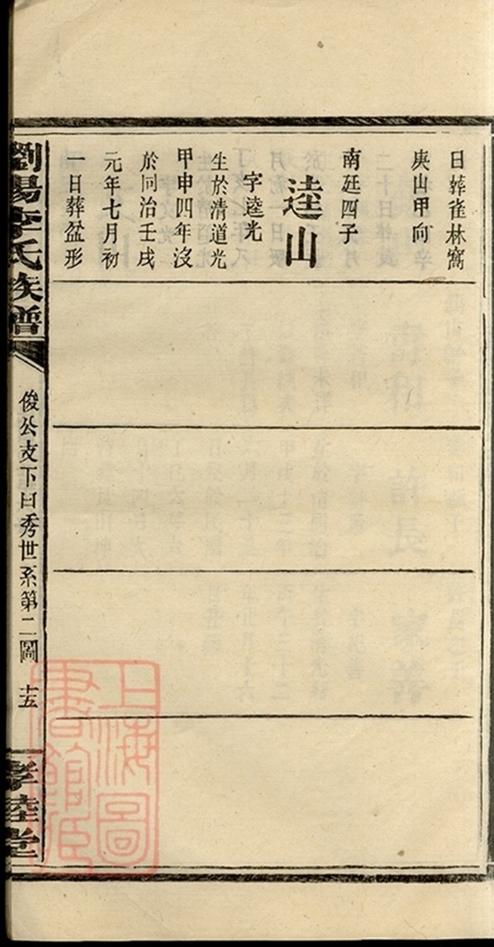 日葬雀林窩
庚山甲向
南廷四子
逵山
字逵光
生於清道光
甲申四年沒
於同治壬戌
元年七月初
一日葬盆形
瀏陽李氏族譜
俊公支下日秀世系第二圖
十五
孝睦堂
上海圖
書館